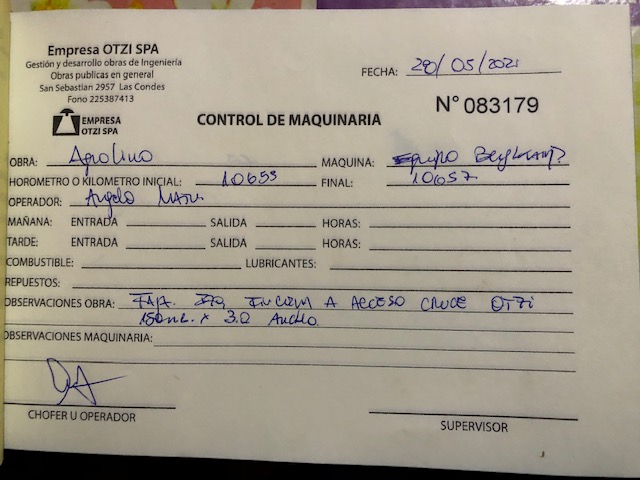 Empresa OTZI SPA
Gestión y desarrollo obras de Ingeniería
Obras publicas en general
San Sebastian 2957 Las Condes
Fono 225387413
EMPRESA
OTZI SPA
FECHA: 28/05/2021
CONTROL DE MAQUINARIA
N° 083179
OBRA: MAQUINA: Equipo
HOROMETRO O KILOMETRO INICIAL: 10653 FINAL: 10657
OPERADOR: Angelo
MAÑANA: ENTRADA SALIDA HORAS:
TARDE: ENTRADA SALIDA HORAS:
COMBUSTIBLE: LUBRICANTES:
REPUESTOS:
OBSERVACIONES OBRA: A Acceso cruce Otzi
150 ML. x 3.0 Ancho
OBSERVACIONES MAQUINARIA:
CHOFER U OPERADOR
SUPERVISOR